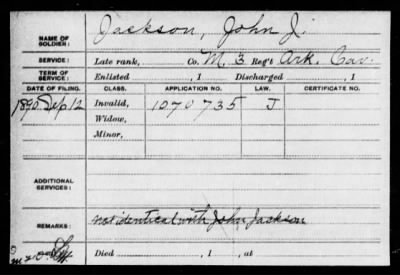 NAME OF SOLDIER: Jackson, John J.
SERVICE: Late rank, Co. M, 3 Reg't Ark. Cav.
TERM OF SERVICE: Enlisted , 1 Discharged , 1
DATE OF FILING. CLASS. APPLICATION NO. LAW. CERTIFICATE NO.
1890 Sep 12 Invalid, 1070735 J
Widow,
Minor,
ADDITIONAL SERVICES:
REMARKS: not identical with John Jackson
Died , 1 , at